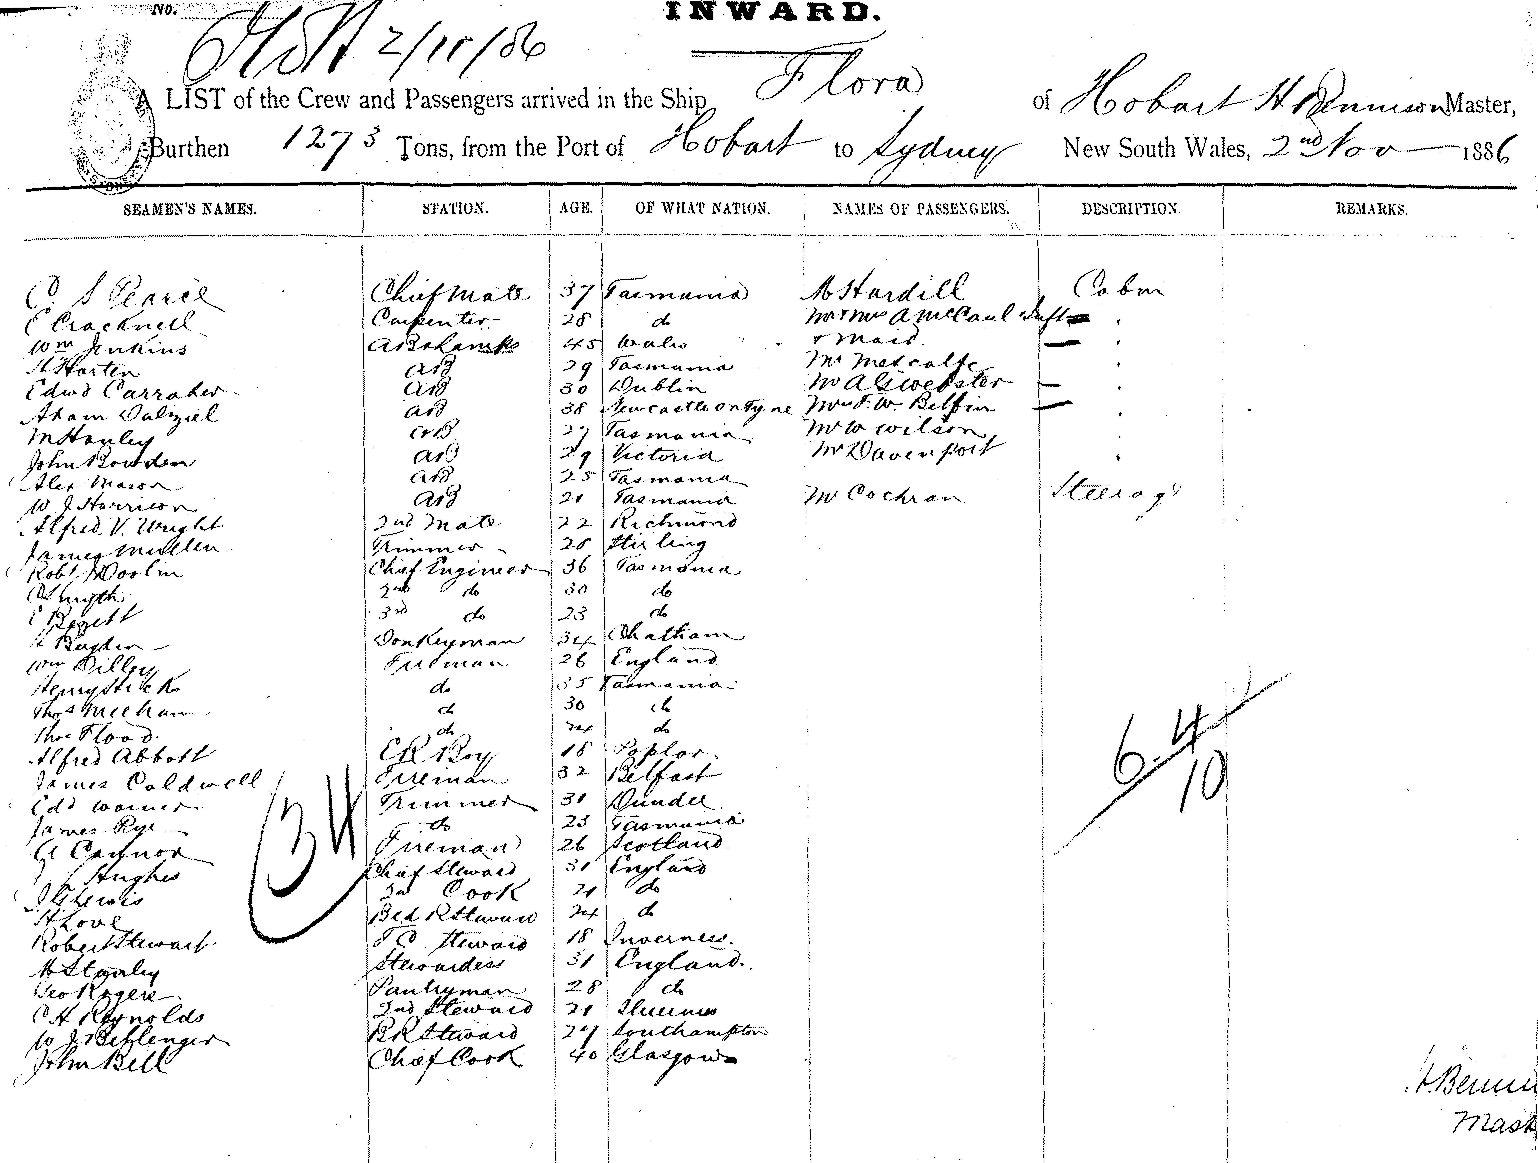 No.
INWARD.
2/11/86
A LIST of the Crew and Passengers arrived in the Ship Flora of Hobart H Bennison Master,
Burthen 1273 Tons, from the Port of Hobart to Sydney New South Wales, 2nd Nov 1886
SEAMEN'S NAMES. STATION. AGE. OF WHAT NATION. NAMES OF PASSENGERS. DESCRIPTION. REMARKS.
C S Pearce Chief Mate 37 Tasmania Hardill Cabin
E Cracknell Carpenter 28 do Mr & Mrs A McCaul
Wm Jenkins AB & Lamps 45 Wales & Maid
H Harten AB 29 Tasmania Mr Metcalfe
Edwd Carraher AB 30 Dublin Mr A G Webster
Adam Dalziel AB 38 Newcastle on Tyne F. W. Belfin
M Hanley AB 27 Tasmania Mr W Wilson
John Bowden AB 29 Victoria Mr Davenport
Alex Mason AB 25 Tasmania
W J Harrison AB 21 Tasmania Mr Cochran Steerage
Alfred V. Wright 2nd Mate 22 Richmond
James Mullen Trimmer 28 Stirling
Robt Chief Engineer 36 Tasmania
Smyth 2nd do 30 do
3rd do 23 do
Donkeyman 34 Chatham
Wm Dilley Fireman 26 England
Henry Hicks do 35 Tasmania
Thos Meehan do 30 do
Thos Flood do 24 do
Alfred Abbott E R Boy 18 Poplar
James Caldwell Fireman 32 Belfast
Edd Warner Trimmer 31 Dundee
James Rye do 23 Tasmania
A Connor Fireman 26 Scotland
Hughes Chief Steward 31 England
Lewis 2nd Cook 21 do
H Love Bed R Steward 24 do
Robert Stewart F C Steward 18 Inverness
M Stanley Stewardess 31 England
Geo Rogers Pantryman 28 do
C H Reynolds 2nd Steward 21
W J R R Steward 27 Southampton
John Bell Chief Cook 40 Glasgow
34
6.4
10
H. Benni
Mast